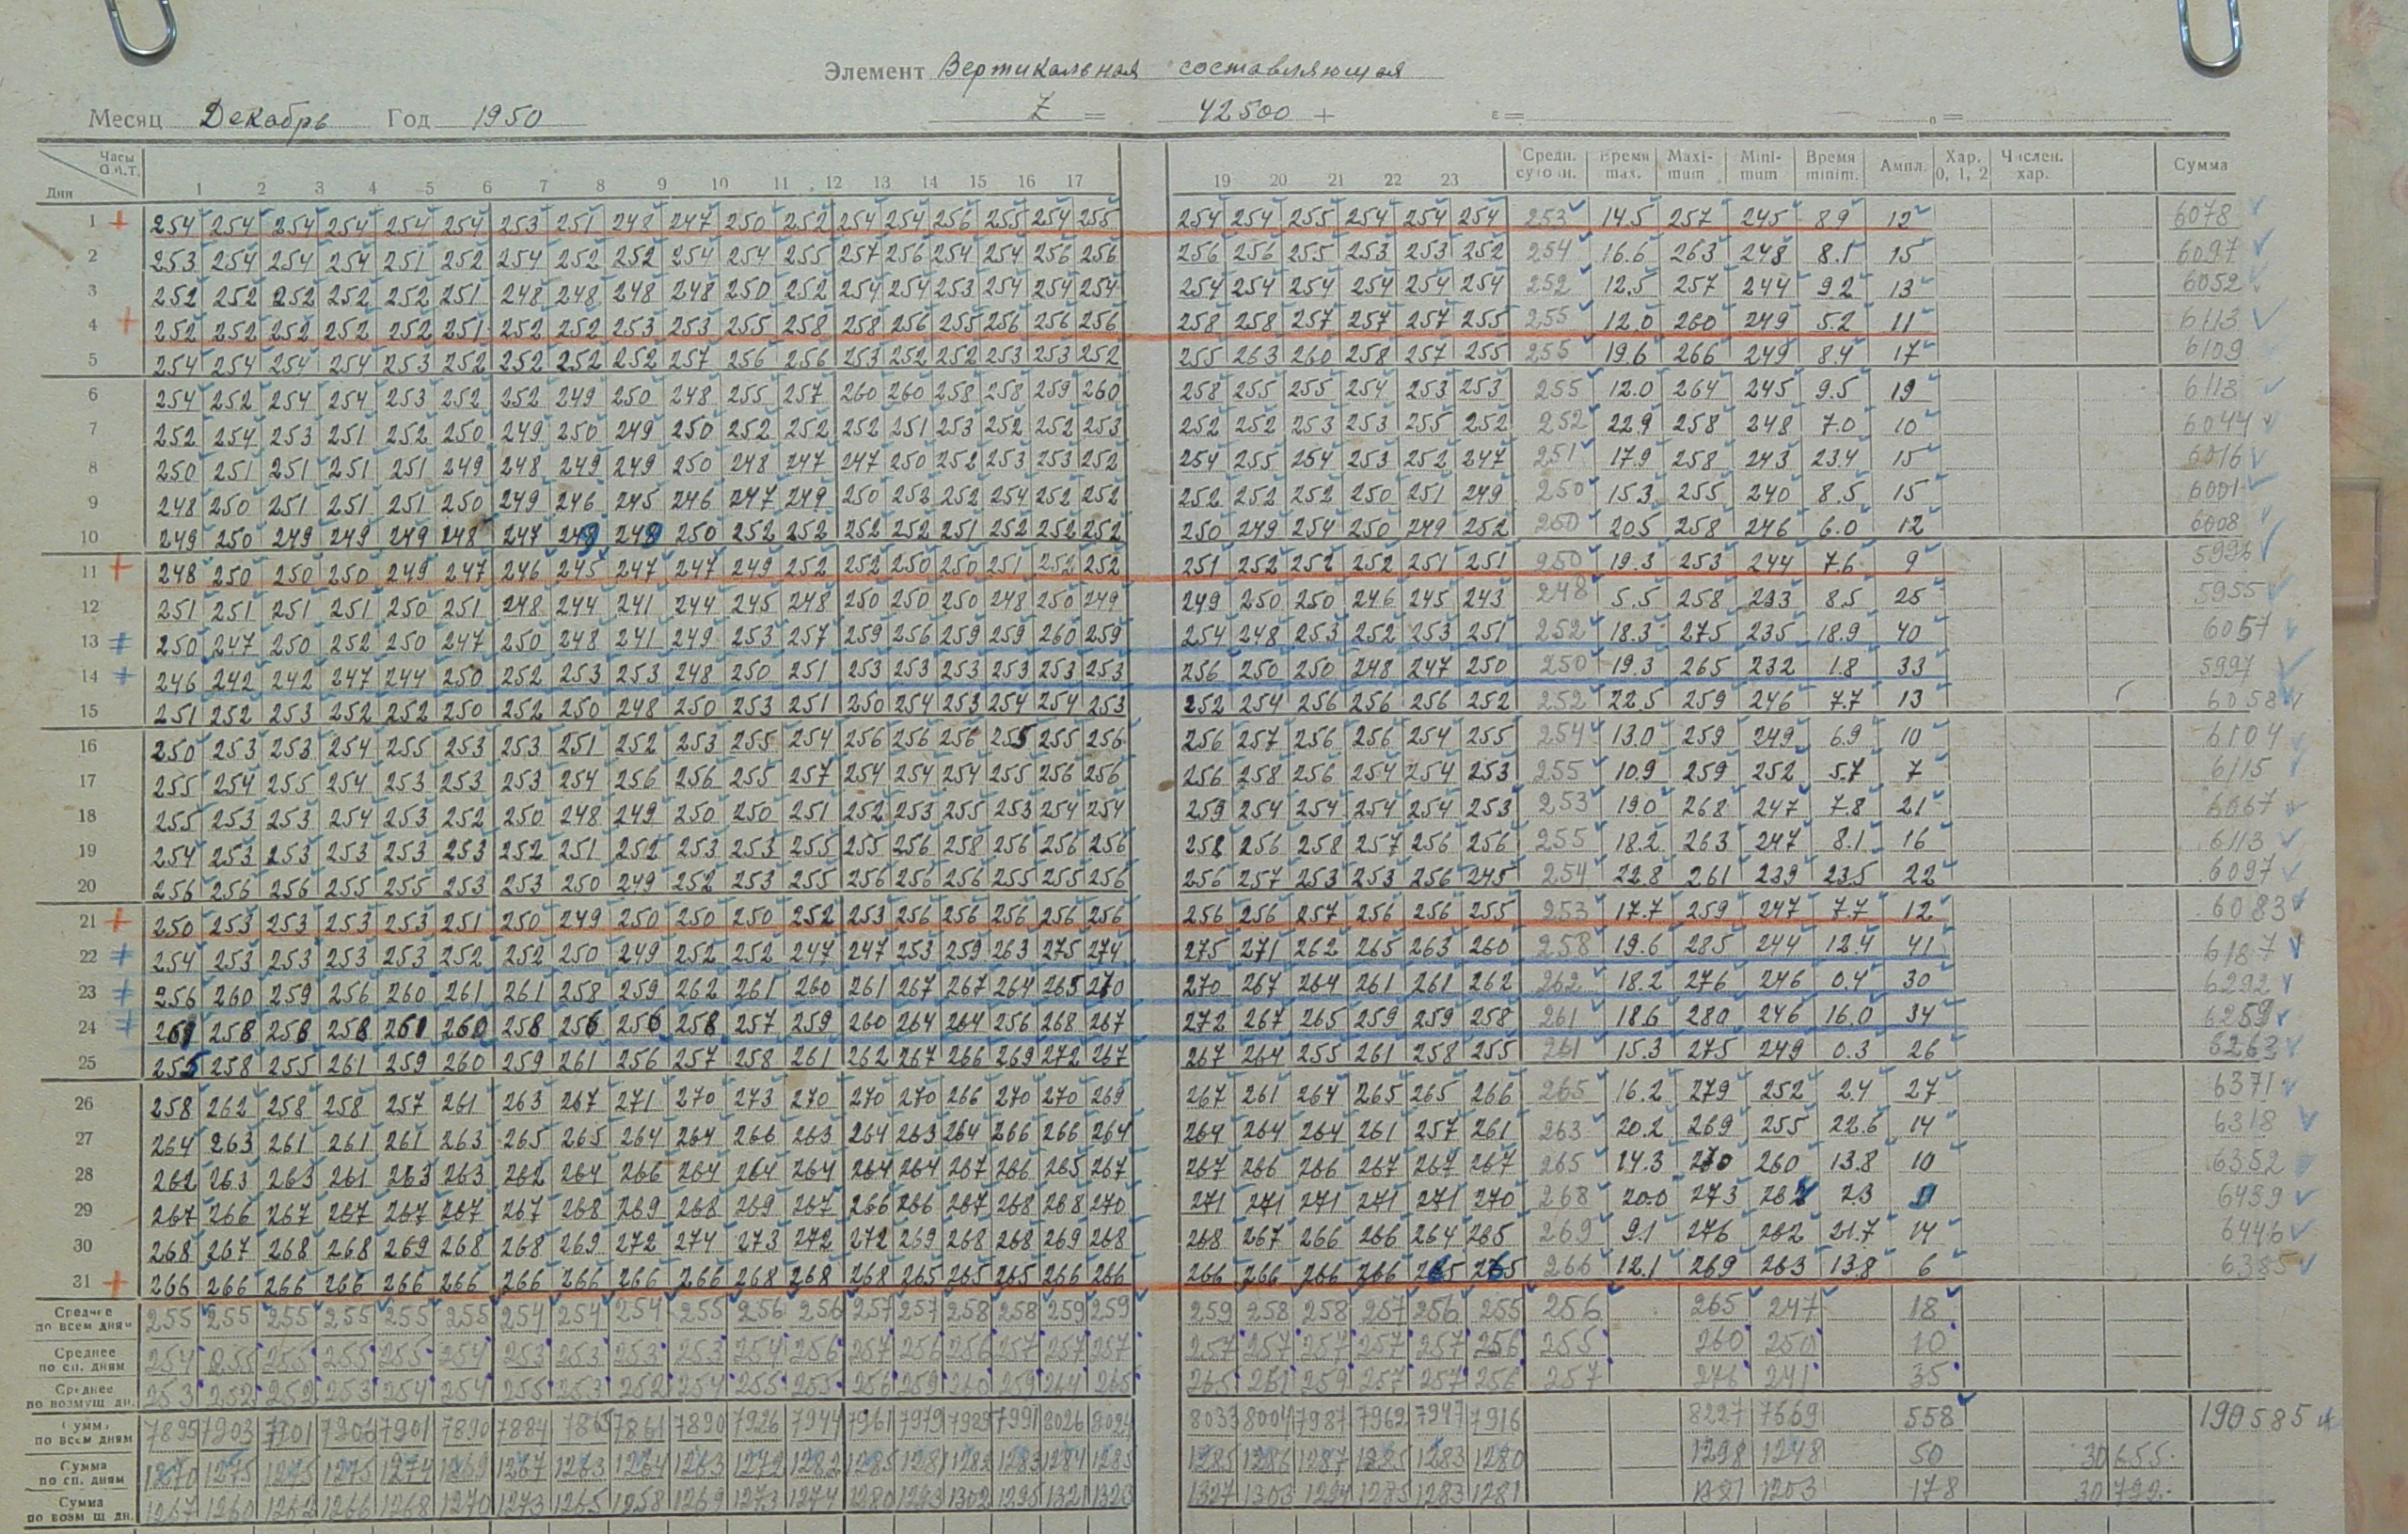 Элемент Вертикальная составляющая
Месяц Декабрь Год 1950 Z = 42500 + ε =
Часы Дни 1 2 3 4 5 6 7 8 9 10 11 12 13 14 15 16 17 19 20 21 22 23 Средн. суточн. Время max. Maxi-mum Mini-mum Время minim. Ампл. Хар. 0, 1, 2 Числен. хар. Сумма
1 + 254 254 254 254 254 254 253 251 248 247 250 252 254 254 256 255 254 255 254 254 255 254 254 254 253 14.5 257 245 8.9 12 6078
2 253 254 254 254 251 252 254 252 252 254 254 255 257 256 254 254 256 256 256 256 255 253 253 252 254 16.6 263 248 8.1 15 6097
3 252 252 252 252 252 251 248 248 248 248 250 252 254 254 253 254 254 254 254 254 254 254 254 254 252 12.5 257 244 9.2 13 6052
4 + 252 252 252 252 252 251 252 252 253 253 255 258 258 256 255 256 256 256 258 258 257 257 257 255 255 12.0 260 249 5.2 11 6113
5 254 254 254 254 253 252 252 252 252 257 256 256 253 252 252 253 253 252 255 263 260 258 257 255 255 19.6 266 249 8.4 17 6109
6 254 252 254 254 253 252 252 249 250 248 255 257 260 260 258 258 259 260 258 255 255 254 253 253 255 12.0 264 245 9.5 19 6113
7 252 254 253 251 252 250 249 250 249 250 252 252 252 251 253 252 252 253 252 252 253 253 255 252 252 22.9 258 248 7.0 10 6044
8 250 251 251 251 251 249 248 249 249 250 248 247 247 250 252 253 253 252 254 255 254 253 252 247 251 17.9 258 243 23.4 15 6016
9 248 250 251 251 251 250 249 246 245 246 247 249 250 252 252 254 252 252 252 252 252 250 251 249 250 15.3 255 240 8.5 15 6001
10 249 250 249 249 249 248 247 249 249 250 252 252 252 252 251 252 252 252 250 249 254 250 249 252 250 20.5 258 246 6.0 12 6008
11 + 248 250 250 250 249 247 246 245 247 247 249 252 252 250 250 251 252 252 251 252 252 252 251 251 250 19.3 253 244 7.6 9 5996
12 251 251 251 251 250 251 248 244 241 244 245 248 250 250 250 248 250 249 249 250 250 246 245 243 248 5.5 258 233 8.5 25 5955
13 # 250 247 250 252 250 247 250 248 241 249 253 257 259 256 259 259 260 259 254 248 253 252 253 251 252 18.3 275 235 18.9 40 6057
14 # 246 242 242 247 244 250 252 253 253 248 250 251 253 253 253 253 253 253 256 250 250 248 247 250 250 19.3 265 232 1.8 33 5997
15 251 252 253 252 252 250 252 250 248 250 253 251 250 254 253 254 254 253 252 254 256 256 256 252 252 22.5 259 246 7.7 13 6058
16 250 253 253 254 255 253 253 251 252 253 255 254 256 256 256 255 255 256 256 257 256 256 254 255 254 13.0 259 249 6.9 10 6104
17 255 254 255 254 253 253 253 254 256 256 255 257 254 254 254 255 256 256 256 258 256 254 254 253 255 10.9 259 252 5.7 7 6115
18 255 253 253 254 253 252 250 248 249 250 250 251 252 253 255 253 254 254 259 254 254 254 254 253 253 19.0 268 247 7.8 21 6067
19 254 253 253 253 253 253 252 251 252 253 253 255 255 256 258 256 256 256 258 256 258 257 256 256 255 18.2 263 247 8.1 16 6113
20 256 256 256 255 255 253 253 250 249 252 253 255 256 256 256 255 255 256 256 257 253 253 256 245 254 22.8 261 239 23.5 22 6097
21 + 250 253 253 253 253 251 250 249 250 250 250 252 253 256 256 256 256 256 256 256 257 256 256 255 253 17.7 259 247 7.7 12 6083
22 # 254 253 253 253 253 252 252 250 249 252 252 247 247 253 259 263 275 274 275 271 262 265 263 260 258 19.6 285 244 12.4 41 6187
23 # 256 260 259 256 260 261 261 258 259 262 261 260 261 267 267 264 265 270 270 267 264 261 261 262 262 18.2 276 246 0.4 30 6292
24 # 261 258 258 258 261 260 258 256 256 258 257 259 260 264 264 256 268 267 272 267 265 259 259 258 261 18.6 280 246 16.0 34 6259
25 255 258 255 261 259 260 259 261 256 257 258 261 262 267 266 269 272 267 267 264 255 261 258 255 261 15.3 275 249 0.3 26 6263
26 258 262 258 258 257 261 263 267 271 270 273 270 270 270 266 270 270 269 267 261 264 265 265 266 265 16.2 279 252 2.4 27 6371
27 264 263 261 261 261 263 265 265 264 264 266 263 264 263 264 266 266 264 264 264 264 261 257 261 263 20.2 269 255 22.6 14 6318
28 262 263 263 261 263 263 262 264 266 264 264 264 264 264 267 266 265 267 267 266 266 267 267 267 265 14.3 270 260 13.8 10 6352
29 267 266 267 267 267 267 267 268 269 268 269 267 266 266 267 268 268 270 271 271 271 271 271 270 268 20.0 273 262 2.3 11 6439
30 268 267 268 268 269 268 268 269 272 274 273 272 272 269 268 268 269 268 268 267 266 266 264 265 269 9.1 276 262 21.7 14 6446
31 + 266 266 266 266 266 266 266 266 266 266 268 268 268 265 265 265 266 266 266 266 266 266 265 265 266 12.1 269 263 13.8 6 6385
Среднее по всем дням 255 255 255 255 255 255 254 254 254 255 256 256 257 257 258 258 259 259 259 258 258 257 256 255 256 265 247 18
Среднее по сп. дням 254 255 255 255 255 254 253 253 253 253 254 256 257 256 256 257 257 257 257 257 257 257 257 256 255 260 250 10
Среднее по возмущ. дн. 253 252 252 253 254 254 255 253 252 254 255 255 256 259 260 259 264 265 265 261 259 257 257 256 257 276 241 35
Сумма по всем дням 7895 7903 7901 7906 7901 7890 7884 7865 7861 7890 7926 7944 7961 7979 7989 7991 8026 8024 8033 8004 7987 7962 7947 7916 8227 7669 558 190585
Сумма по сп. дням 1270 1275 1275 1275 1274 1269 1267 1263 1264 1263 1272 1282 1285 1281 1282 1283 1284 1285 1285 1286 1287 1285 1283 1280 1298 1248 50 30655
Сумма по возмущ. дн. 1267 1260 1262 1266 1268 1270 1273 1265 1258 1269 1273 1274 1280 1293 1302 1295 1321 1323 1327 1303 1294 1285 1283 1281 1381 1203 178 30792